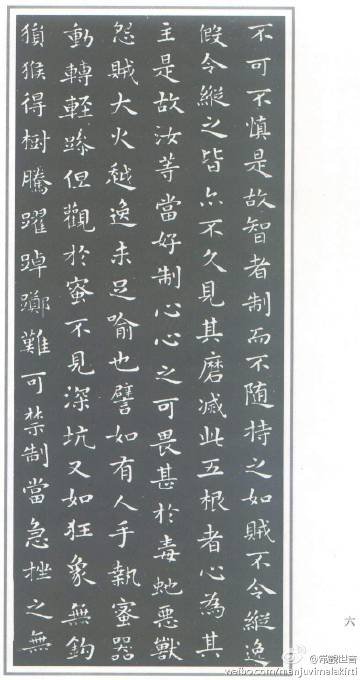 不可不慎是故智者制而不随持之如賊不令縱逸
假令縱之皆亦不久見其磨滅此五根者心為其
主是故汝等當好制心心之可畏甚於毒虵惡獸
怨賊大火越逸未足喻也譬如有人手執蜜器
動轉輕躁但觀於蜜不見深坑又如狂象無鉤
猿猴得樹騰躍踔躑難可禁制當急挫之無
六
觀世音
weibo.com/manjuvimalakirti